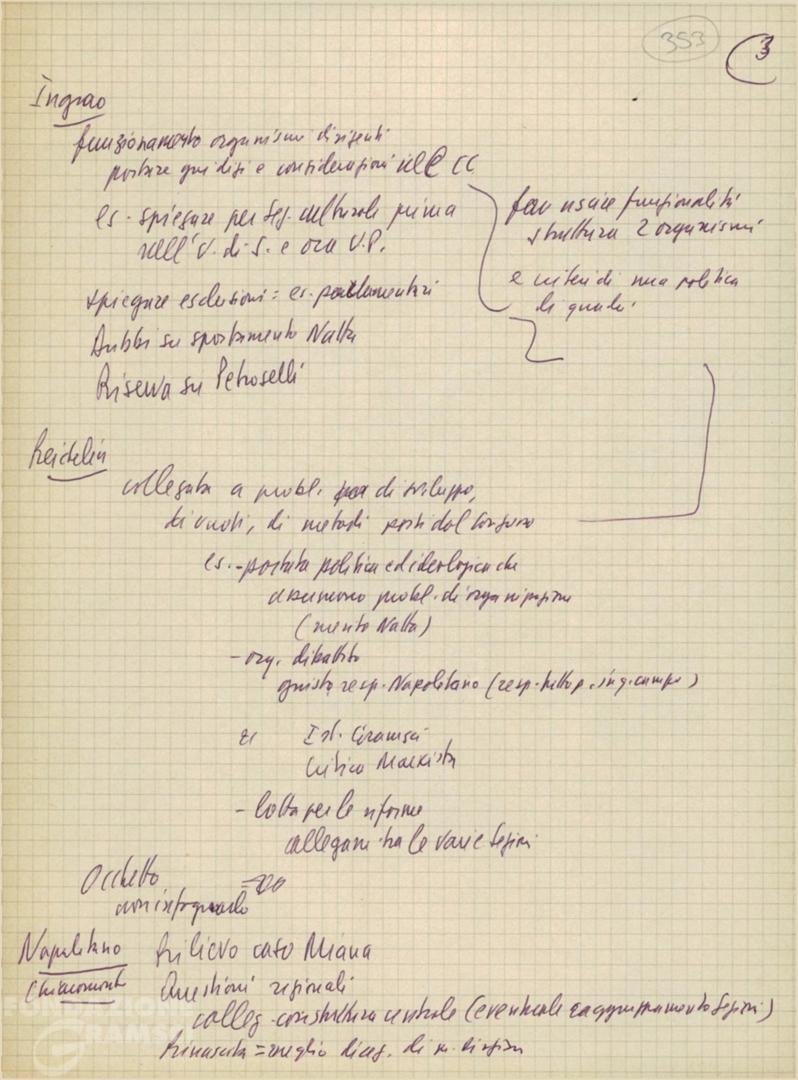 353
3
Ingrao
funzionamento organismi dirigenti
portare giudizi e considerazioni al CC
es. spiegare per Sez. culturale prima
nell'U. di S. e ora V.P.
spiegare esclusioni = es. parlamentari
Dubbi su spostamento Natta
Riserva su Petroselli
far uscire funzionalità
struttura 2 organismi
e criteri di una politica
di quadri
Reichlin
collegata a probl. di sviluppo,
di vuoti, di metodi posti dal Congresso
es. - portata politica ed ideologica che
assumono probl. di organizzazione
(merito Natta)
- org. dibattito
giusta resp. Napolitano (resp.
es Ist. Gramsci
Critica Marxista
- lotta per le riforme
collegam. tra le varie Sezioni
Occhetto
non
Napolitano rilievo caso Miana
Chiaromonte Questioni regionali
colleg. con struttura centrale (eventuale raggruppamento Sezioni)
Rinascita = meglio
FONDAZIONE
GRAMSCI